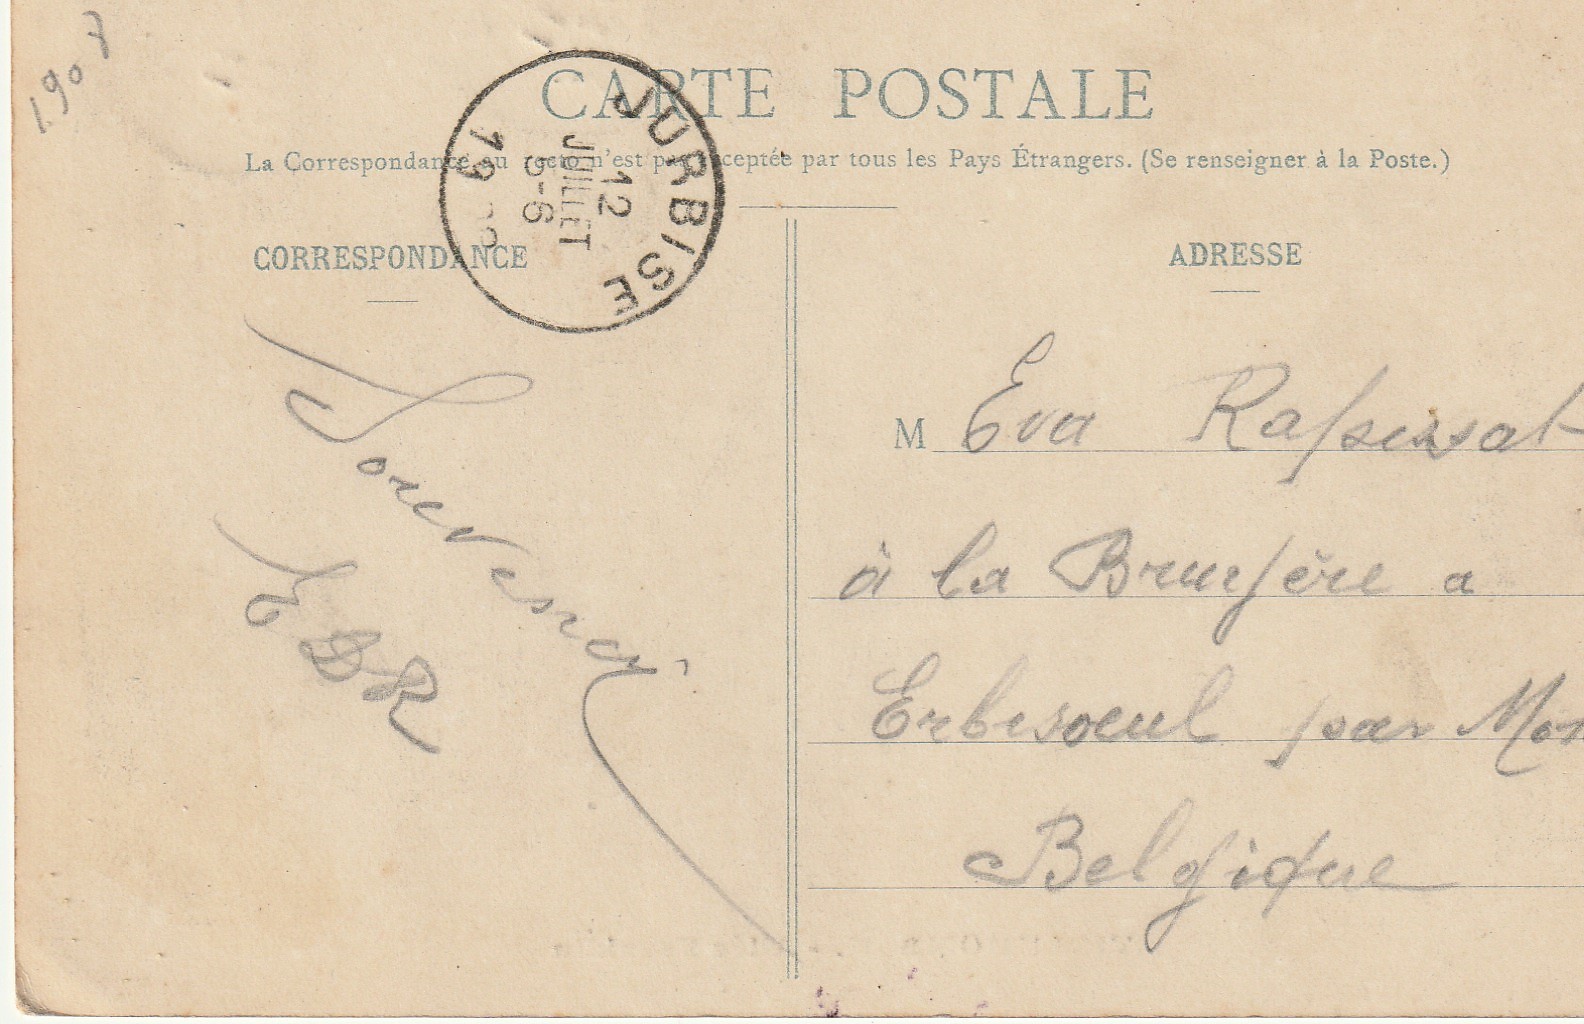 1907
CARTE POSTALE
La Correspondance au recto n'est pas acceptée par tous les Pays Étrangers. (Se renseigner à la Poste.)
JURBISE
12
JUILLET
5-6
19
CORRESPONDANCE
Souvenir
EDR
ADRESSE
M Eva
à la Bruyère a
Erbisoeul par Mon
Belgique